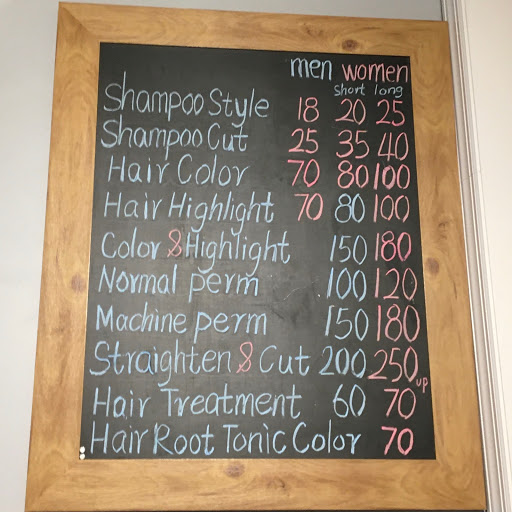 men women
short long
Shampoo Style 18 20 25
Shampoo Cut 25 35 40
Hair Color 70 80 100
Hair Highlight 70 80 100
Color & Highlight 150 180
Normal perm 100 120
Machine perm 150 180
Straighten & Cut 200 250 up
Hair Treatment 60 70
Hair Root Tonic Color 70